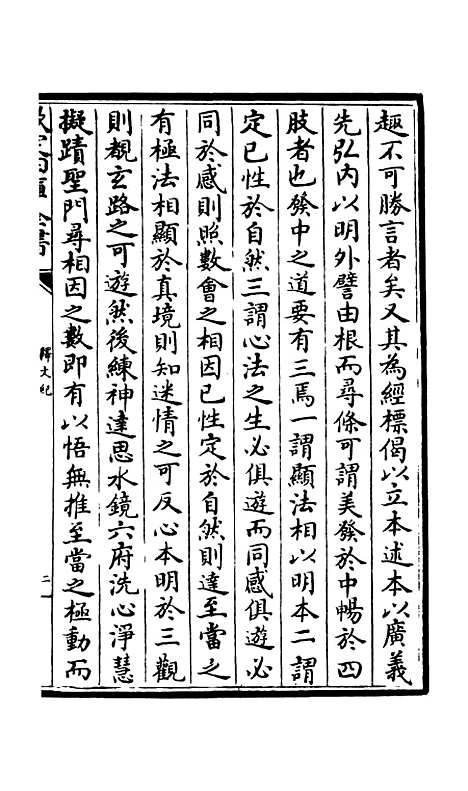 趣不可勝言者矣又其為經標偈以立本述本以廣義
先弘内以明外譬由根而尋條可謂美發於中暢於四
肢者也發中之道要有三焉一謂顯法相以明本二謂
定己性於自然三謂心法之生必俱遊而同感俱遊必
同於感則照數會之相因已性定於自然則達至當之
有極法相顯於真境則知迷情之可反心本明於三觀
則覩玄路之可遊然後練神達思水鏡六府洗心淨慧
擬蹟聖門尋相因之數即有以悟無推至當之極動而
釋文紀
二